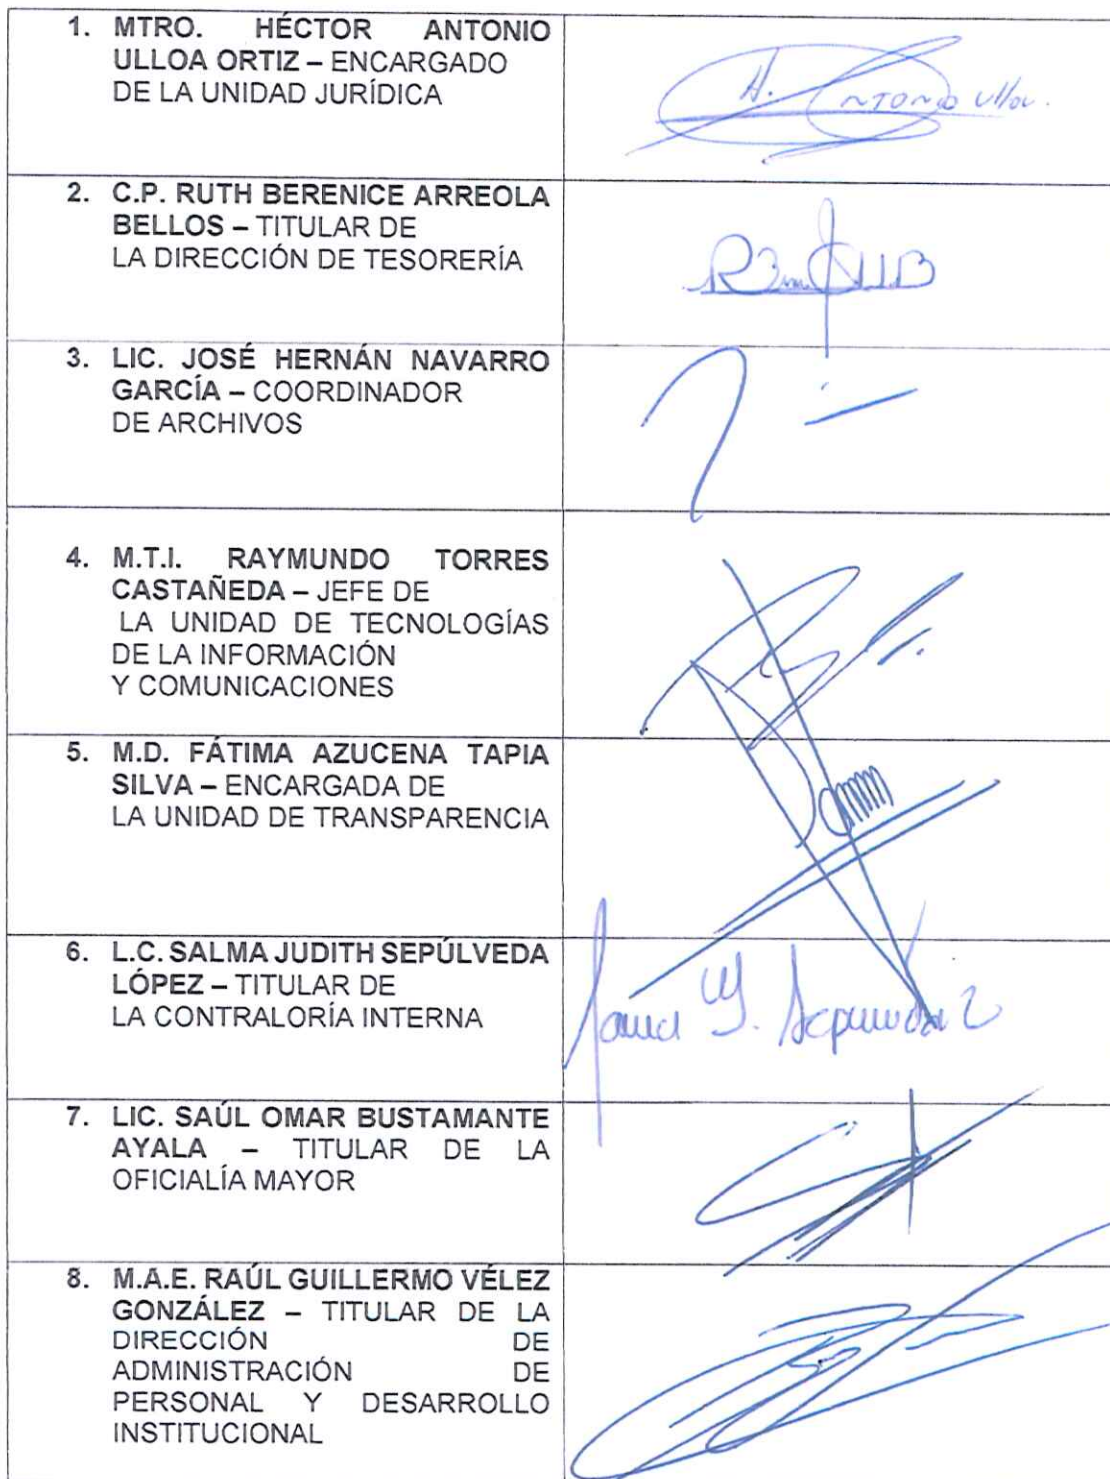 1. MTRO. HÉCTOR ANTONIO
ULLOA ORTIZ – ENCARGADO
DE LA UNIDAD JURÍDICA
A. ANTONIO Ulloa.
2. C.P. RUTH BERENICE ARREOLA
BELLOS – TITULAR DE
LA DIRECCIÓN DE TESORERÍA
3. LIC. JOSÉ HERNÁN NAVARRO
GARCÍA – COORDINADOR
DE ARCHIVOS
4. M.T.I. RAYMUNDO TORRES
CASTAÑEDA – JEFE DE
LA UNIDAD DE TECNOLOGÍAS
DE LA INFORMACIÓN
Y COMUNICACIONES
5. M.D. FÁTIMA AZUCENA TAPIA
SILVA – ENCARGADA DE
LA UNIDAD DE TRANSPARENCIA
6. L.C. SALMA JUDITH SEPÚLVEDA
LÓPEZ – TITULAR DE
LA CONTRALORÍA INTERNA
7. LIC. SAÚL OMAR BUSTAMANTE
AYALA – TITULAR DE LA
OFICIALÍA MAYOR
8. M.A.E. RAÚL GUILLERMO VÉLEZ
GONZÁLEZ – TITULAR DE LA
DIRECCIÓN DE
ADMINISTRACIÓN DE
PERSONAL Y DESARROLLO
INSTITUCIONAL